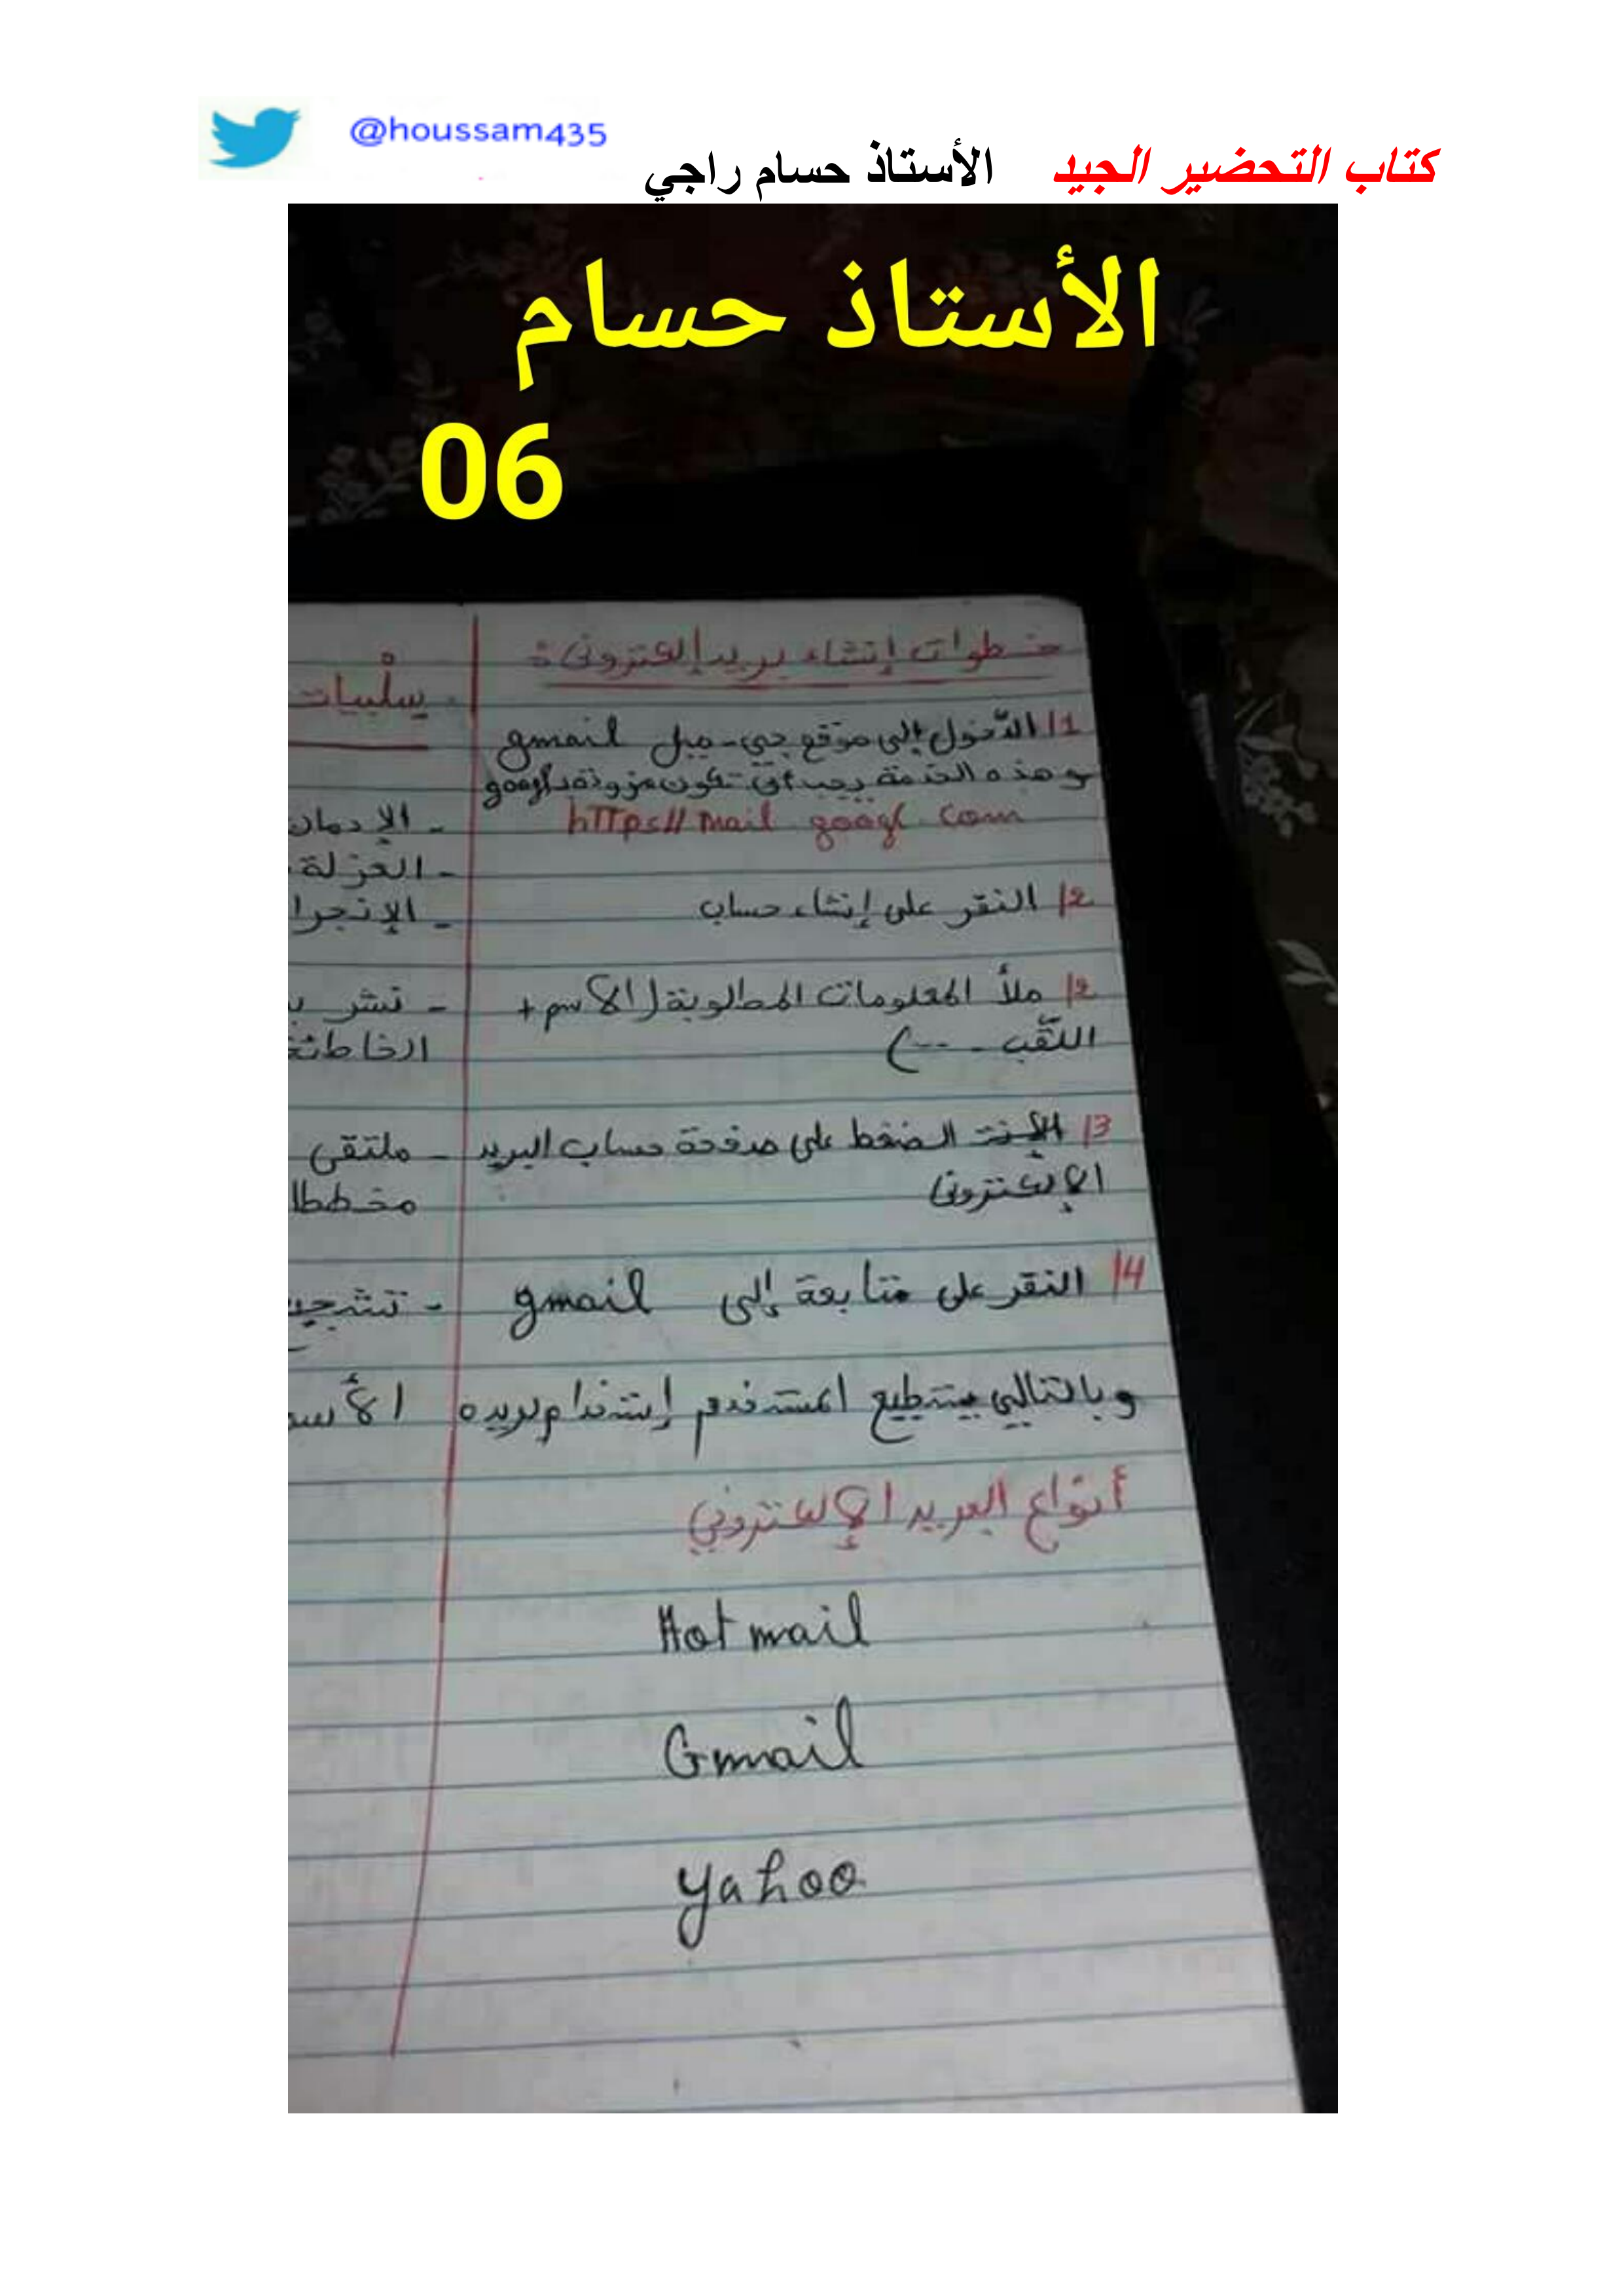 @houssam435
كتاب التحضير الجيد الأستاذ حسام راجي
الأستاذ حسام
06
خطوات إنشاء بريد إلكتروني:
1/ الدّخول إلى موقع جي-ميل gmail
وهذه الخدمة يجب أن تكون مزودة googl
https// mail googl. com
2/ النقر على إنشاء حساب
2/ ملأ المعلومات المطلوبة (الاسم +
اللّقب - ...)
3/ الضغط على صفحة حساب البريد
الإلكتروني
4/ النقر على متابعة إلى gmail
وبالتالي يستطيع المستخدم إستخدام بريده
أنواع البريد الإلكتروني
Hotmail
Gmail
yahoo
سلبيات
- الإدمان
- العزلة
- الإنجرا
- نشر
الخاطئة
- ملتقى
مخططا
- تشجيع
الأسر